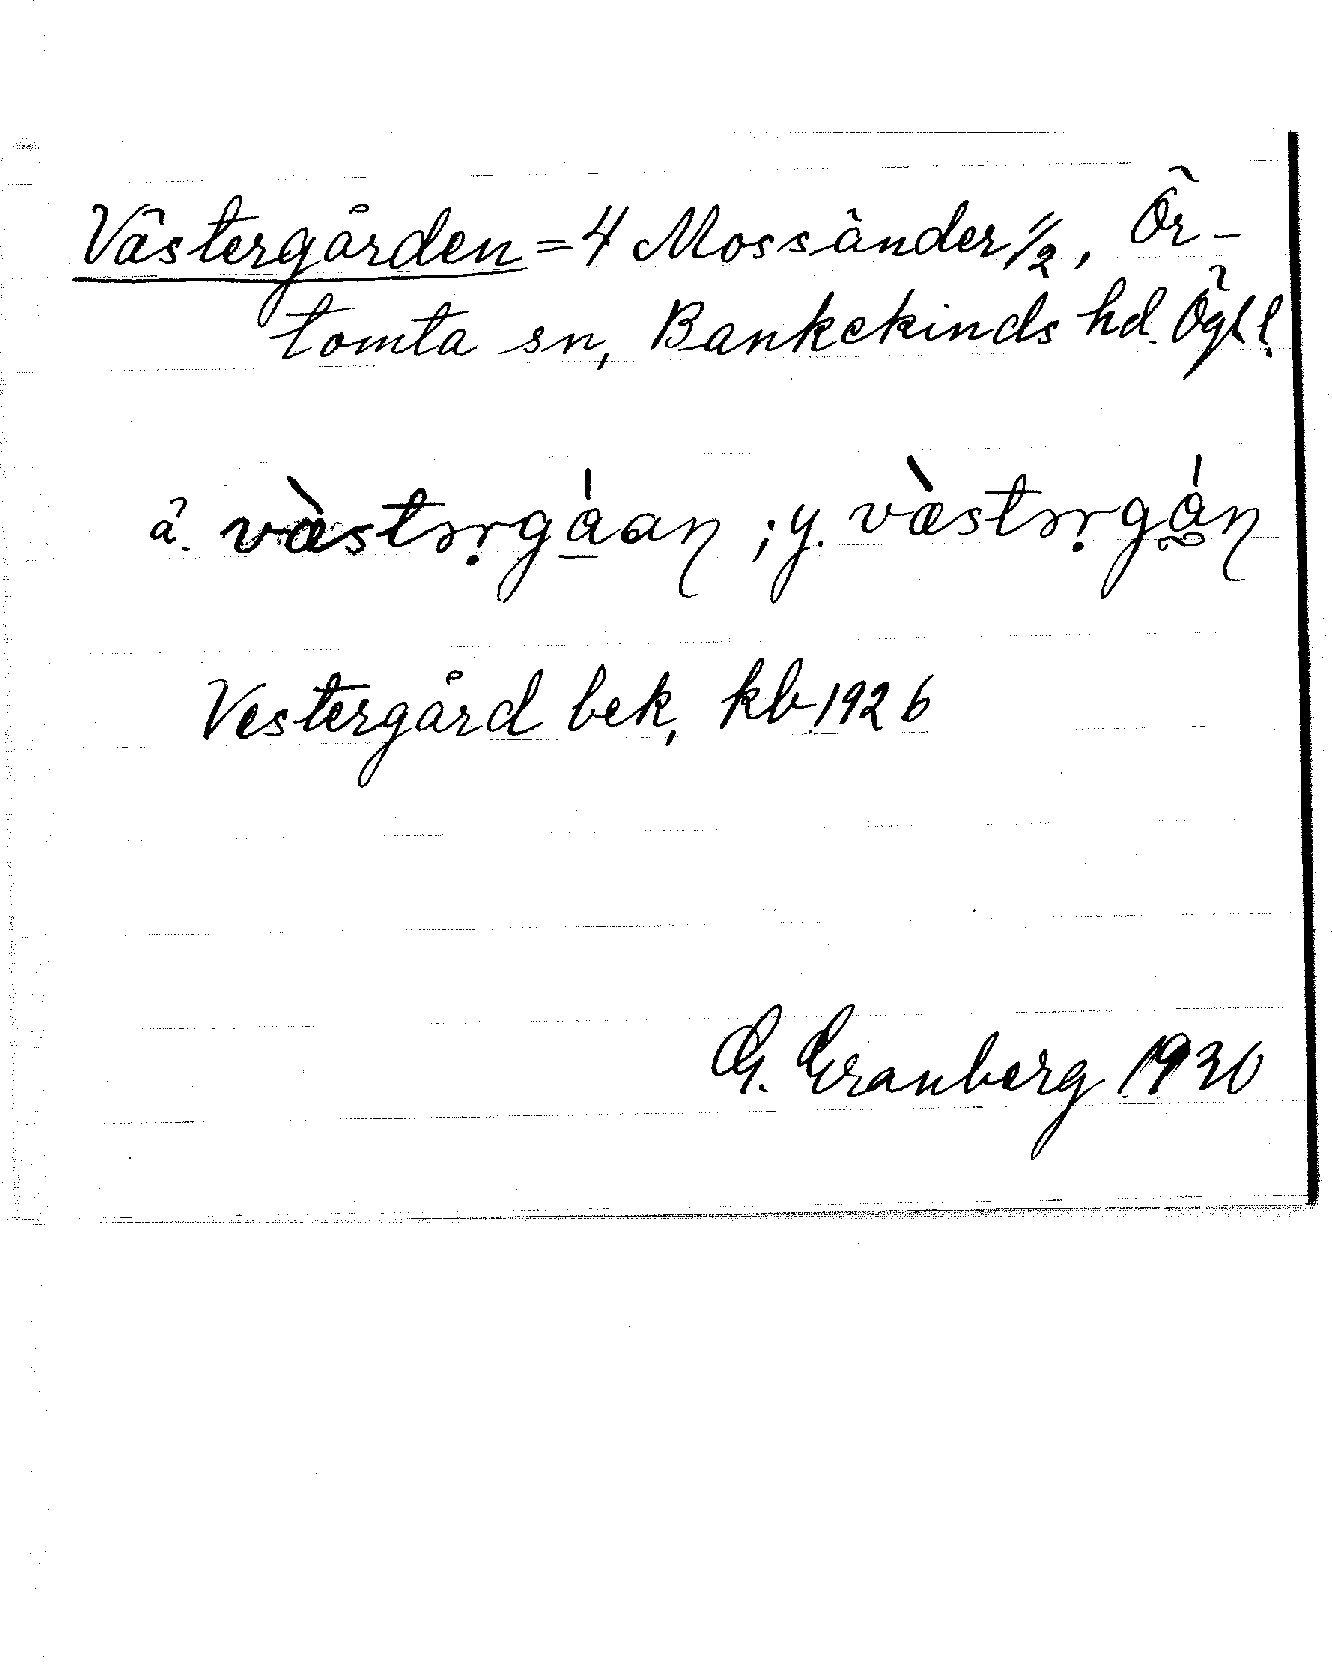 Västergården = 4 Mossänder 1/2, Ör-
tomta sn, Bankekinds hd. Ögl.
ä. væ̀stɔr̥gáan ; y. væ̀stɔr̥gán
Vestergård bek, kb 1926
G. Granberg 1930